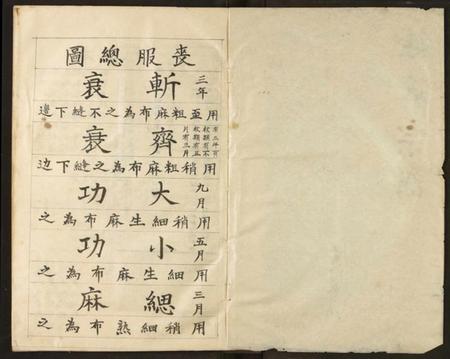 喪服總圖
三年
斬衰
用至粗麻布為之不縫下邊
有三年有
杖期有不
杖期有五
月有三月
齊衰
用稍粗麻布為之縫下边
九月
大功
用稍細生麻布為之
五月
小功
用細生麻布為之
三月
緦麻
用稍細熟布為之